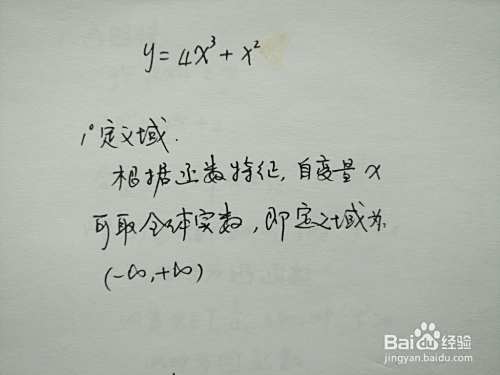 y=4x³+x²
1°定义域.
根据函数特征,自变量x
可取全体实数,即定义域为:
(-∞,+∞)
Baidu经验
jingyan.baidu.com